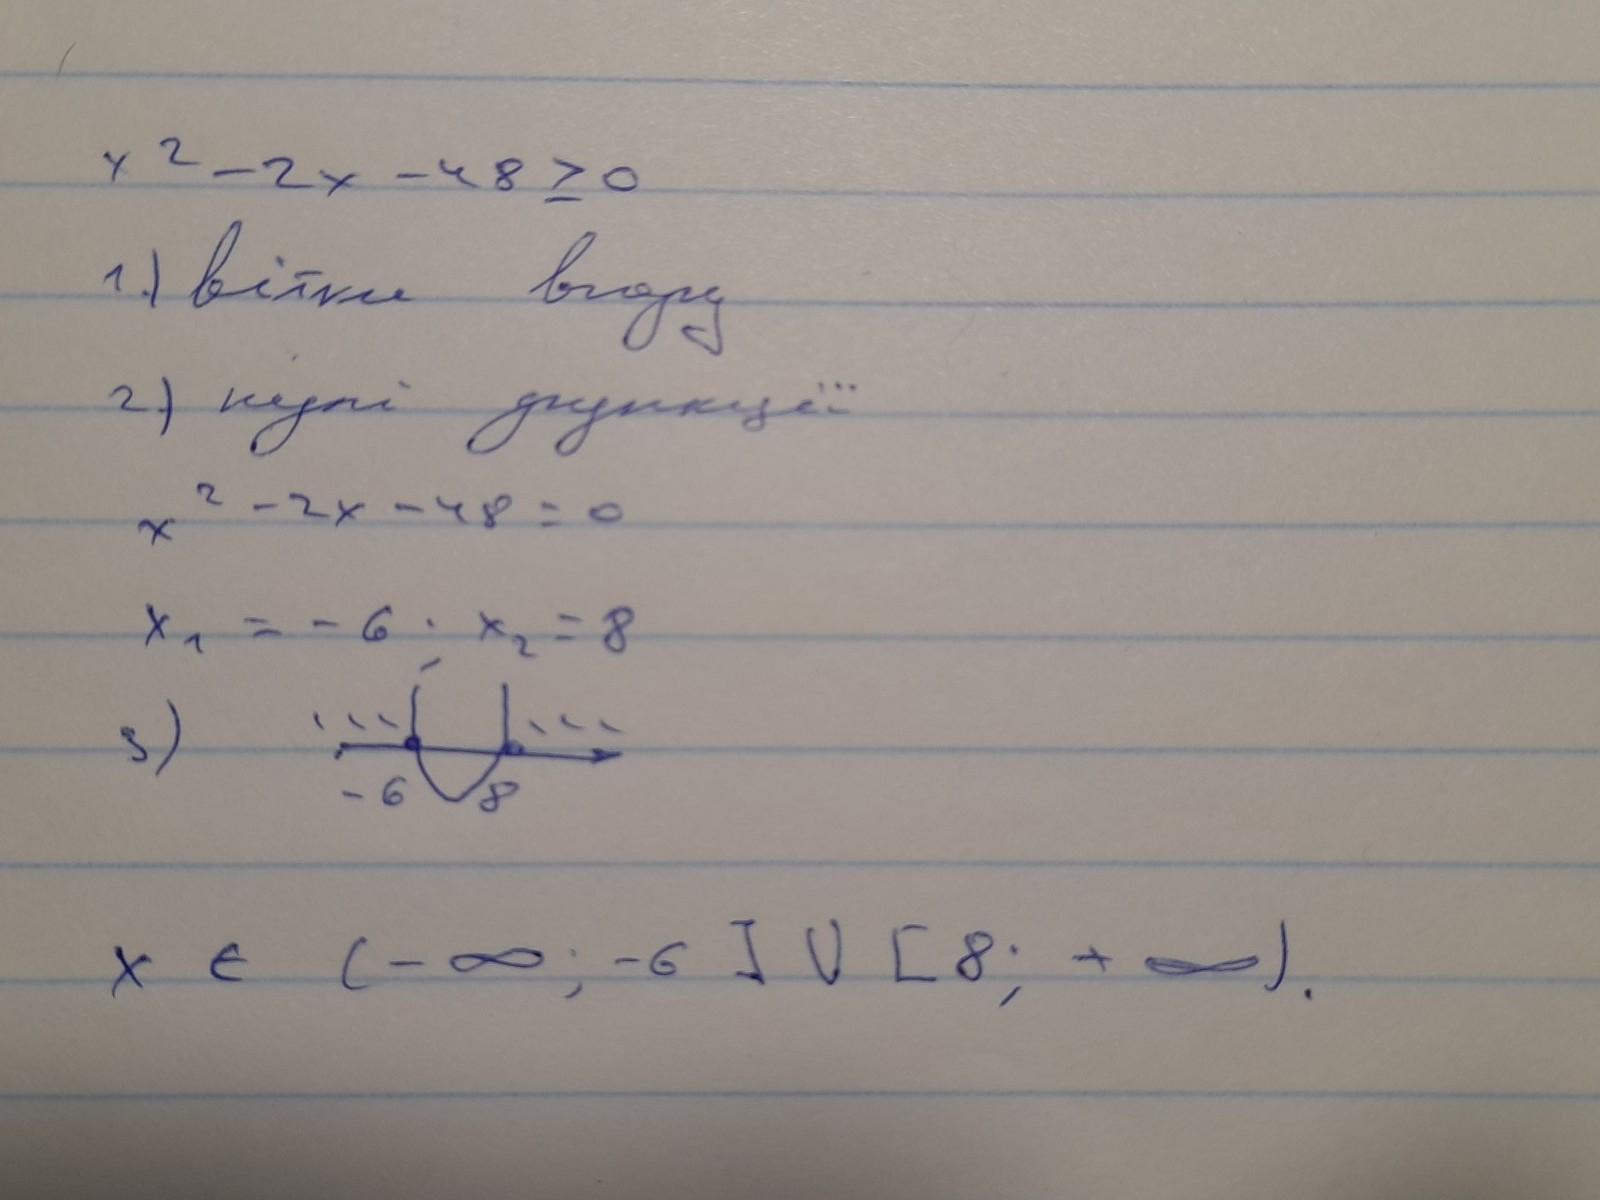 x² - 2x - 48 ≥ 0
1.) вітки вгору
2.) нулі функції
x² - 2x - 48 = 0
x₁ = -6; x₂ = 8
3)
-6 8
x ∈ (-∞; -6] ∪ [8; +∞).